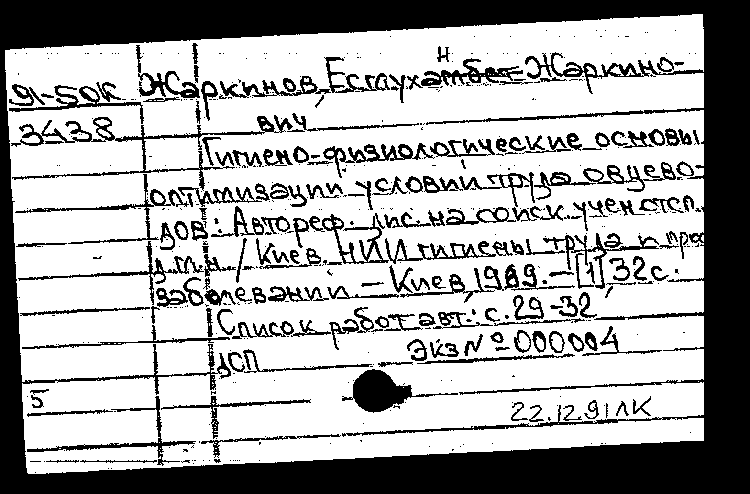 91-50К Жаркинов, Есмухан Жаркино-
3438 вич
Гигиено-физиологические основы
оптимизации условий труда овцево-
дов: Автореф. дис. на соиск. учен. степ.
д.м.н. / Киев. НИИ гигиены труда и проф
заболеваний. – Киев, 1989. – [1] 32 с.
Список работ авт.: с. 29-32
ДСП Экз № 000004
5
22.12.91 ЛК